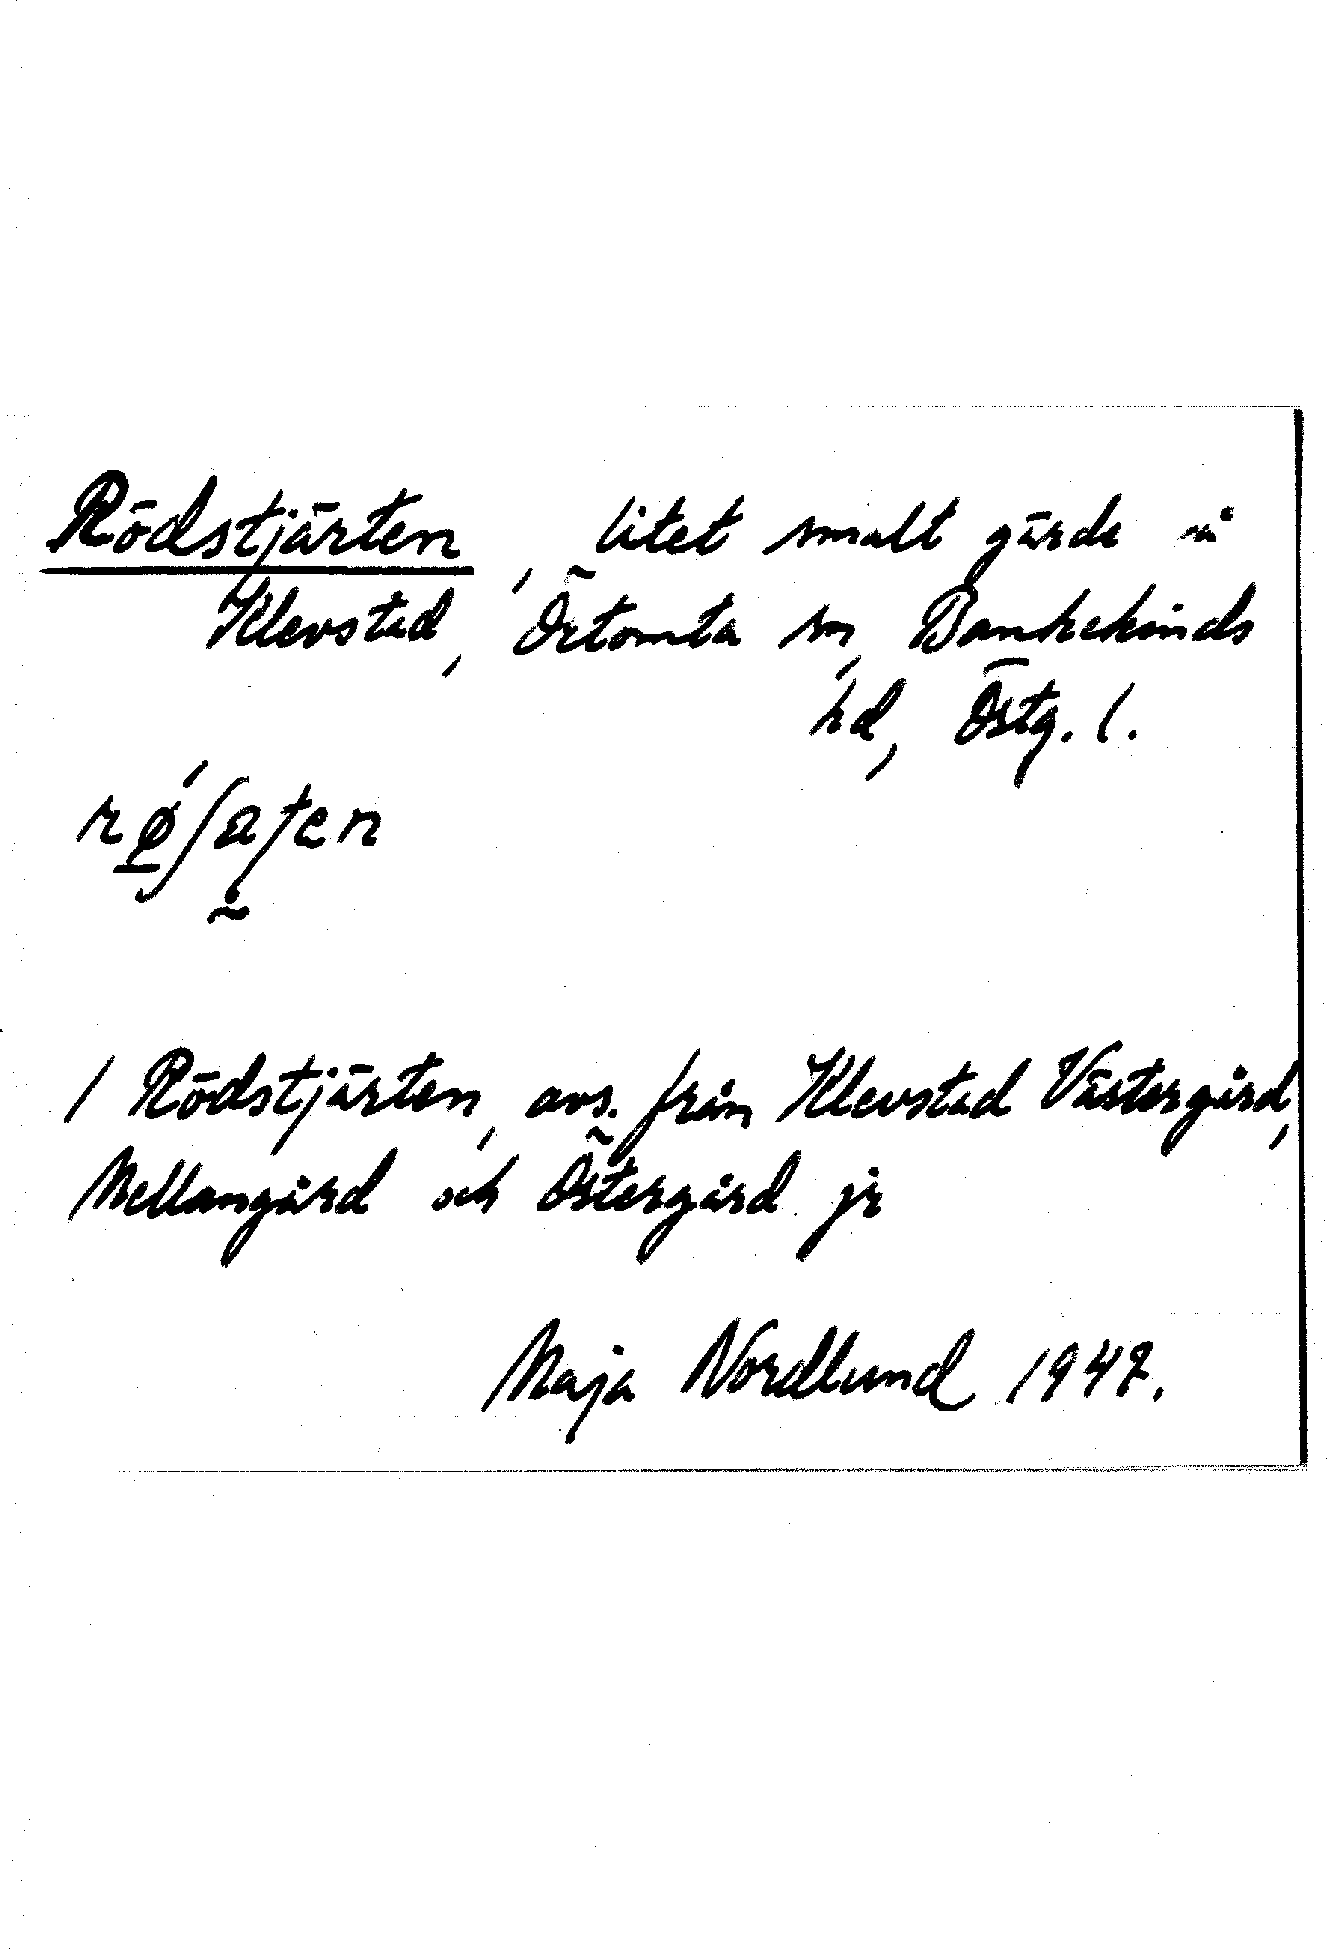 Rödstjärten, litet smalt gärde på
Klevstad, Örtomta sn, Bankekinds
hd, Östg. l.
/ Rödstjärten, avs. från Klevstad Västergård,
Mellangård och Östergård jr
Maja Nordlund 1947.